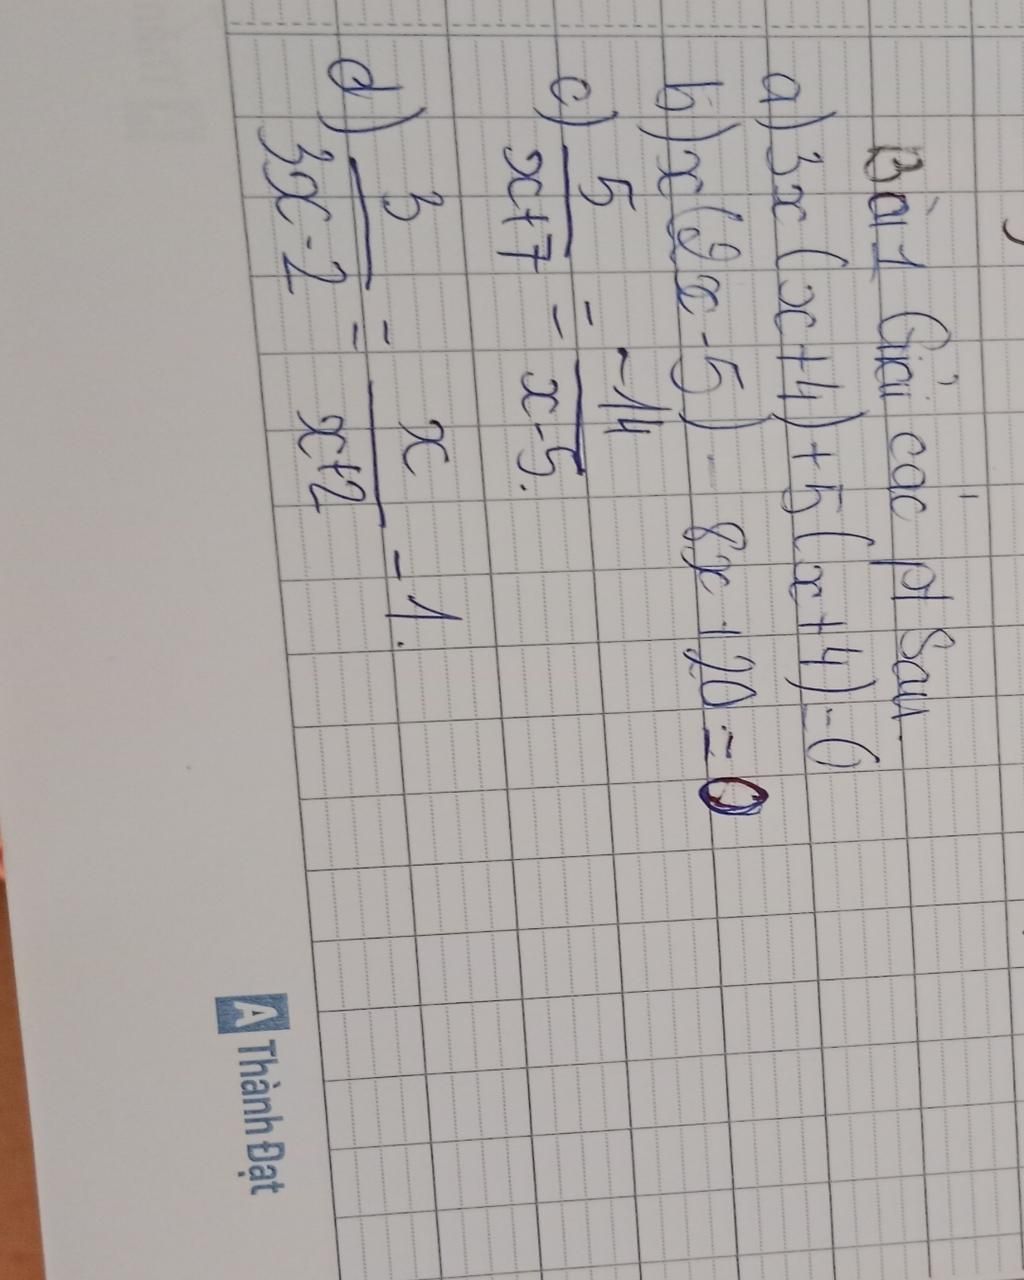 Bài 1 Giải các pt Sau.
a) 3x (x+4) + 5 (x+4) = 0
b) x (2x - 5) - 8x + 20 = 0
c) 5/(x+7) = -14/(x-5).
d) 3/(3x-2) = x/(x+2) - 1.
A Thành Đạt